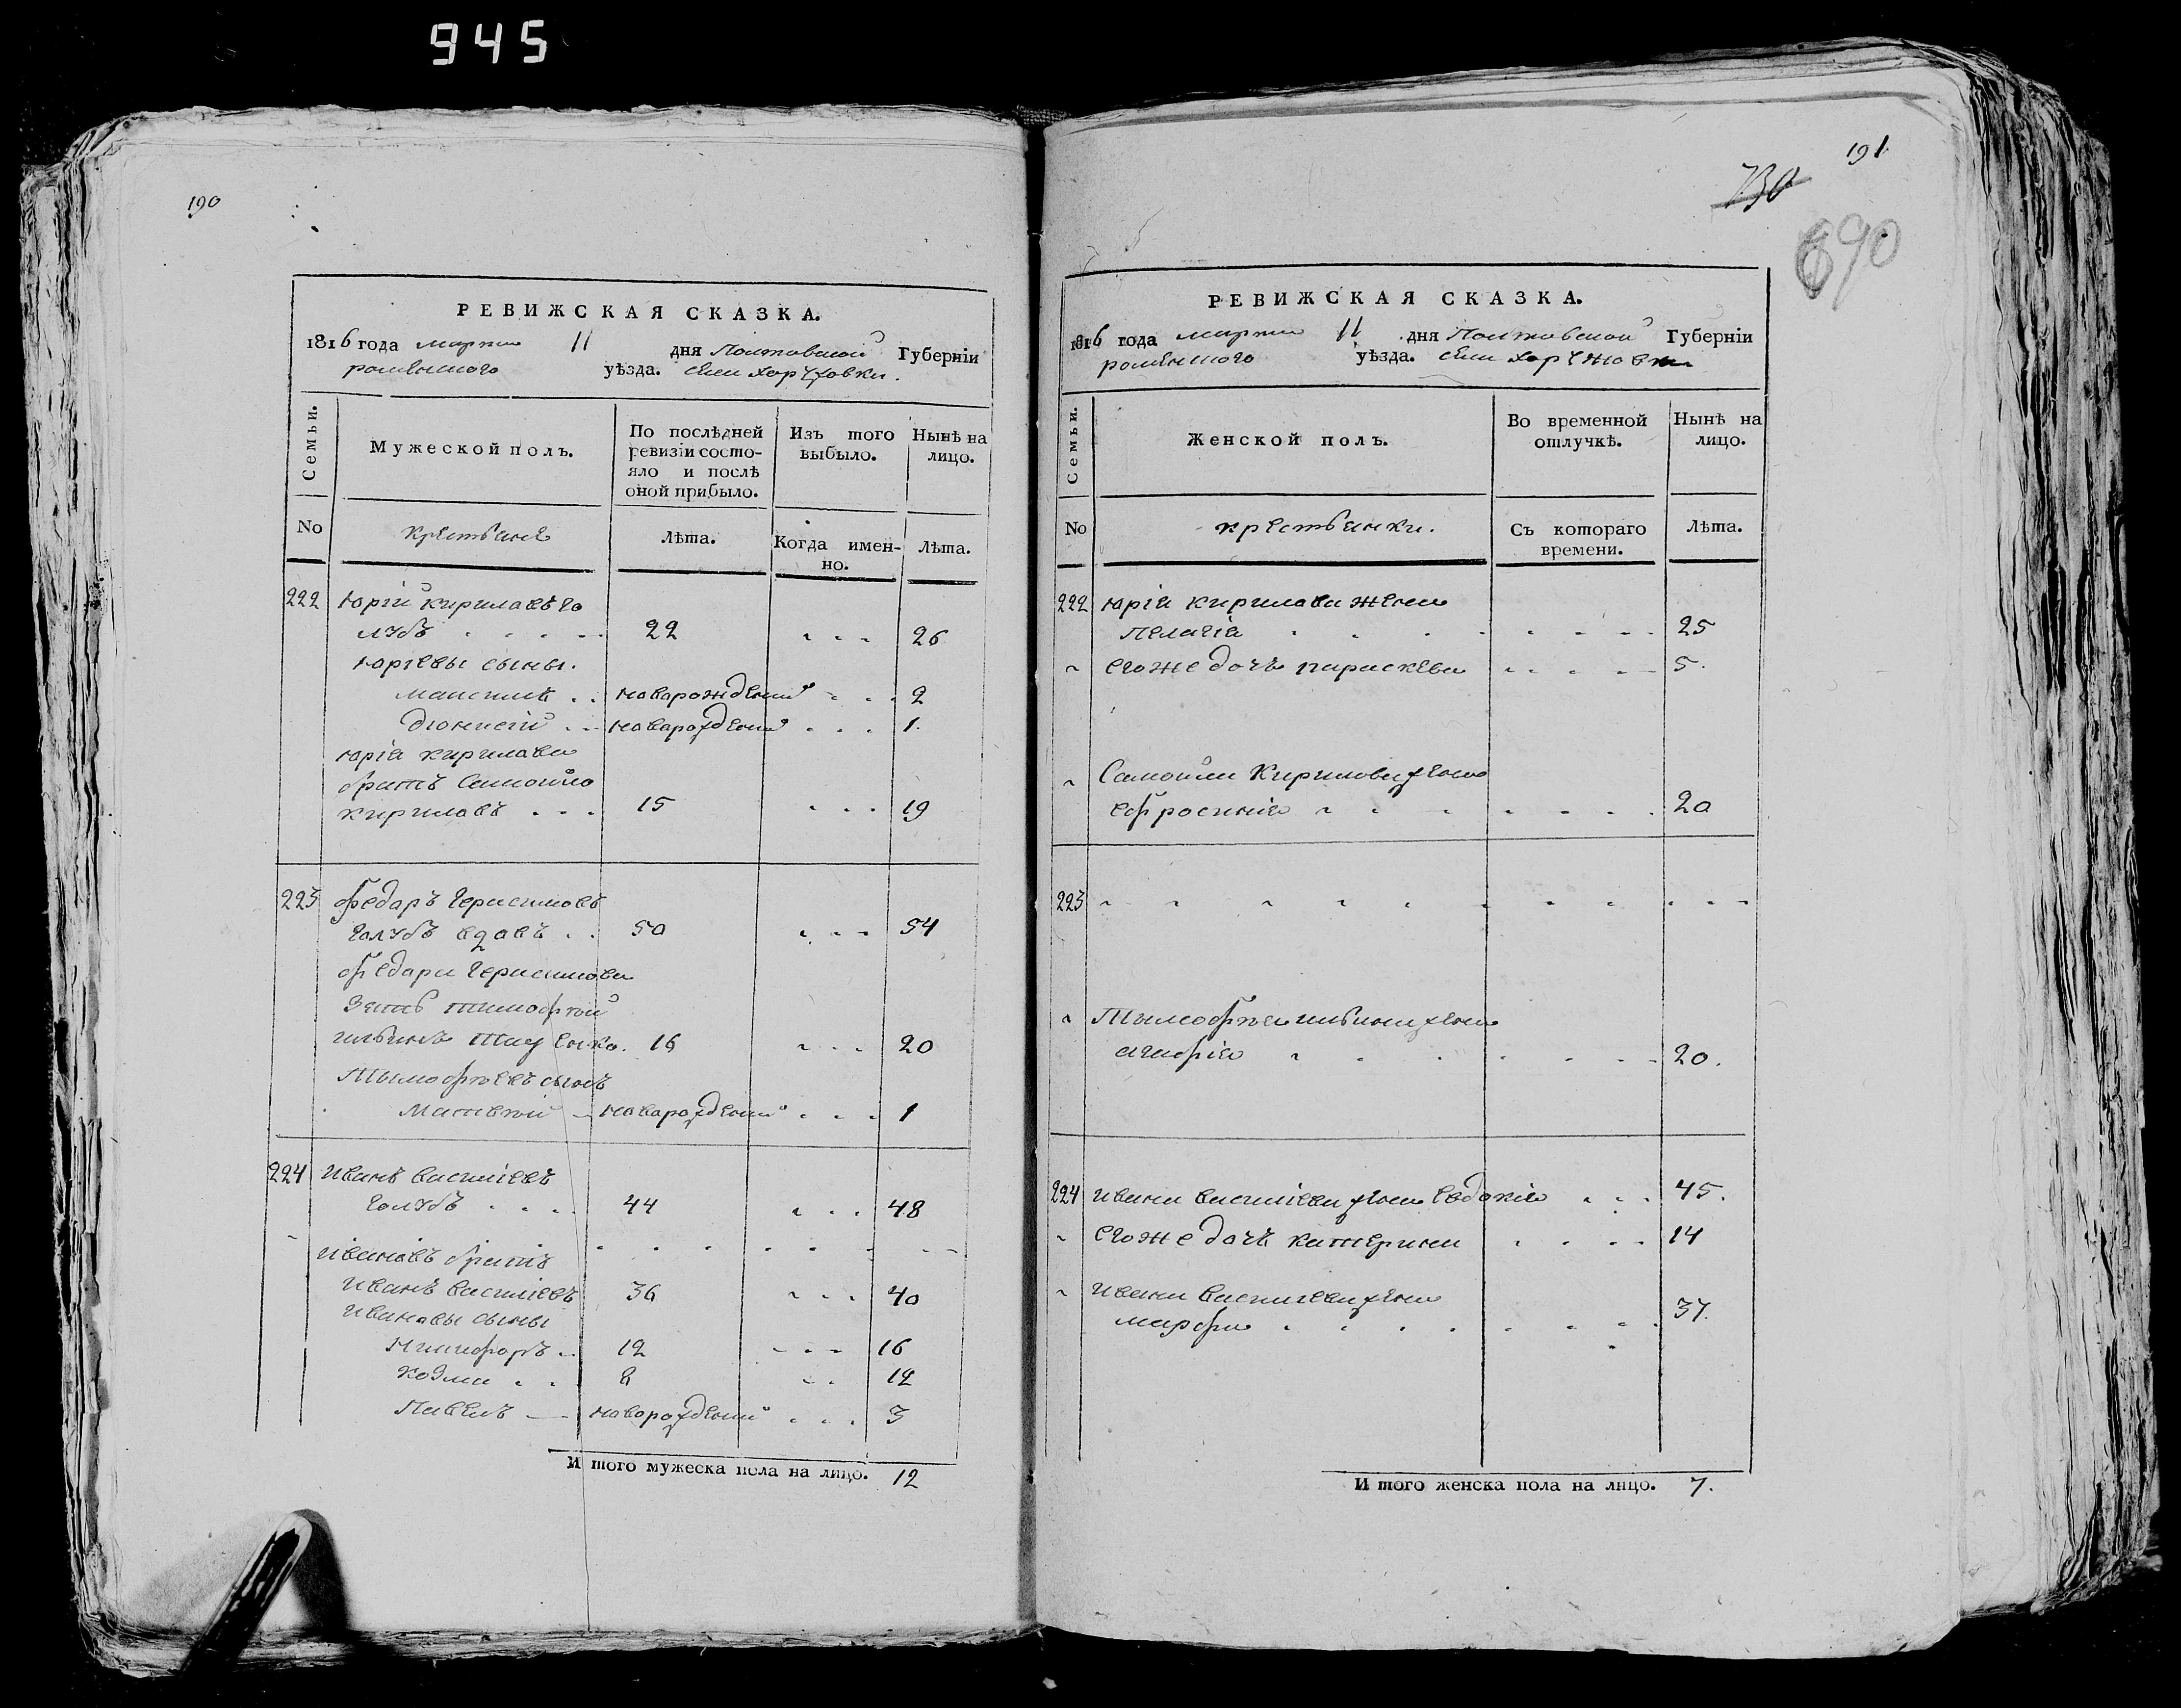 945
190
РЕВИЖСКАЯ СКАЗКА.
1816 года марта 11 дня Полтавской Губерніи
роменского уѣзда. села
Семьи.
Мужеской полъ.
По послѣдней ревизіи состояло и послѣ оной прибыло.
Изъ того выбыло.
Нынѣ на лицо.
No
крестьяне
Лѣта.
Когда именно.
Лѣта.
222 Юрій кирилавъ го
лубъ 22 26
юріевы сыны.
новарожденый 2
діонисій новарожденый 1.
юрія кирилава
братъ самойло
кирилавъ 15 19
223 федаръ герасимовъ
голубъ вдовъ 50 54
федара герасимова
зять тимофей
ильинъ 16 20
тымофеевъ сынъ
матвей новарожденый 1
224 иванъ василіевъ
голубъ 44 48
ивановъ братъ
иванъ василіевъ 36 40
ивановы сыны
никифоръ 12 16
козма 8 12
павелъ новорожденый 3
И того мужеска пола на лицо. 12
191
730
690
РЕВИЖСКАЯ СКАЗКА.
1816 года марта 11 дня Полтавской Губерніи
роменского уѣзда. села
Семьи.
Женской полъ.
Во временной отлучкѣ.
Нынѣ на лицо.
No
крестьянки.
Съ котораго времени.
Лѣта.
222 юрія кирилава жена
пелагія 25
егоже дочь параскева 5.
самойла кирилова жена
ефросинія 20
223
тымофея ильина жена
агафія 20.
224 ивана василіева жена евдокія 45.
егоже дочь катерина 14
ивана василіева жена
марфа 37.
И того женска пола на лицо. 7.